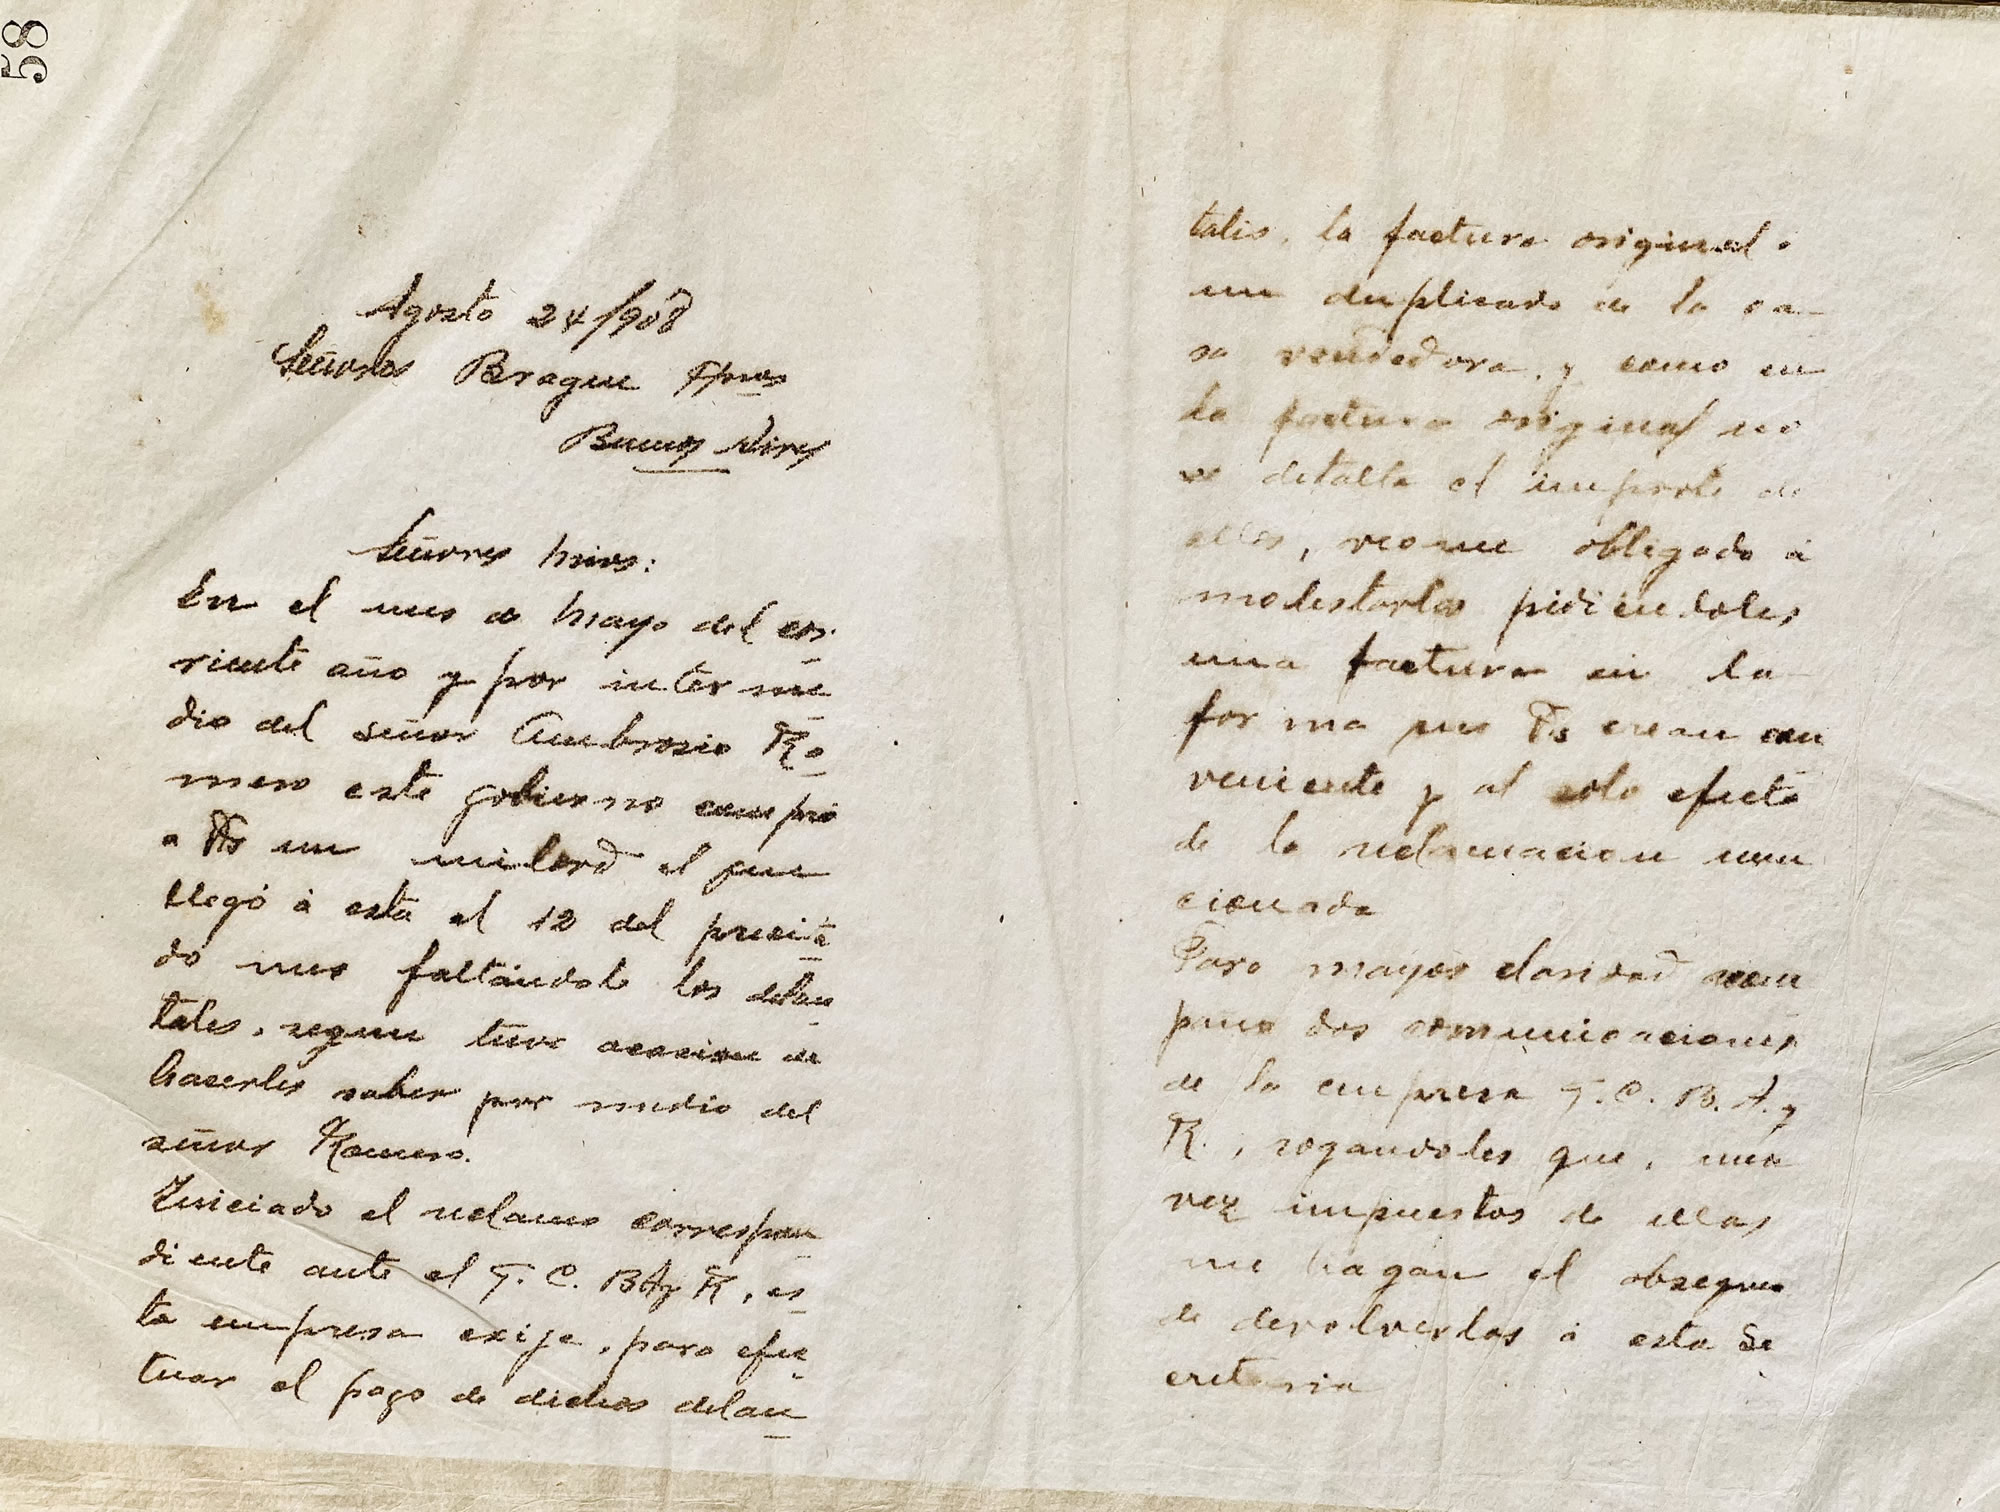 58
Agosto 24/908
Señores Bragun Hnos
Buenos Aires
Señores mios:
En el mes de Mayo del cor-
riente año y por interme
dio del señor Ambrosio Ro
mero este gobierno compró
a Vs un milord el que
llegó á esta el 12 del precita
do mes faltándole los delan
tales, segun tuve ocasion de
hacerles saber por medio del
señor Romero.
Iniciado el reclamo correspon
diente ante el F. C. B A y R, es
ta empresa exije, para efec
tuar el pago de dichos delan
tales, la factura original o
un duplicado de la ca-
sa vendedora, y como en
la factura original no
se detalla el importe de
ellos, veome obligado á
molestarlos pidiendoles
una factura en la
forma que Vs crean con
veniente y al solo efecto
de la reclamacion men
cionada
Para mayor claridad acom
paño dos comunicaciones
de la empresa F. C. B. A. y
R., rogandoles que, una
vez impuestos de ellas
me hagan el obsequio
de devolverlas á esta Se
cretaria